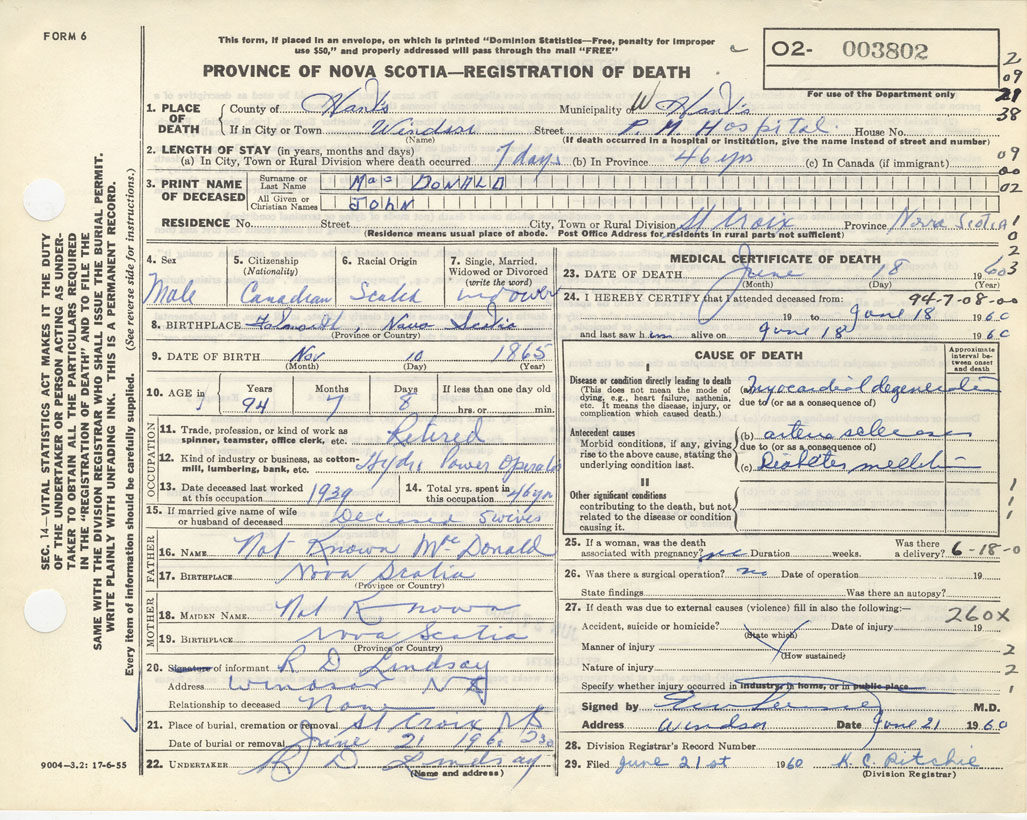 FORM 6
This form, if placed in an envelope, on which is printed "Dominion Statistics—Free, penalty for improper
use $50," and properly addressed will pass through the mail "FREE"
O2- 003802
For use of the Department only
PROVINCE OF NOVA SCOTIA—REGISTRATION OF DEATH
2
09
21
38
09
00
02
1
0
2
3
1. PLACE OF DEATH
County of Hants Municipality of W Hants
If in City or Town Windsor Street P. M. Hospital House No.
(Name) (If death occurred in a hospital or institution, give the name instead of street and number)
2. LENGTH OF STAY (in years, months and days)
(a) In City, Town or Rural Division where death occurred 7 days (b) In Province 46 yrs (c) In Canada (if immigrant)
3. PRINT NAME OF DECEASED
Surname or Last Name Mac DONALD
All Given or Christian Names JOHN
RESIDENCE No. Street City, Town or Rural Division St Croix Province Nova Scotia
(Residence means usual place of abode. Post Office Address for residents in rural parts not sufficient)
4. Sex
Male
5. Citizenship
(Nationality)
Canadian
6. Racial Origin
Scotch
7. Single, Married,
Widowed or Divorced
(write the word)
widower
8. BIRTHPLACE Falmouth, Nova Scotia
(Province or Country)
9. DATE OF BIRTH Nov 10 1865
(Month) (Day) (Year)
10. AGE in
Years Months Days If less than one day old
94 7 8 hrs. or min.
OCCUPATION
11. Trade, profession, or kind of work as
spinner, teamster, office clerk, etc. Retired
12. Kind of industry or business, as cotton-
mill, lumbering, bank, etc. Hydro Power Operator
13. Date deceased last worked
at this occupation 1939
14. Total yrs. spent in
this occupation 46 yrs
15. If married give name of wife
or husband of deceased Deceased 5 wives
FATHER
16. NAME Not Known Mac Donald
17. BIRTHPLACE Nova Scotia
(Province or Country)
MOTHER
18. MAIDEN NAME Not Known
19. BIRTHPLACE Nova Scotia
(Province or Country)
20. Signature of informant R D Lindsay
Address Windsor NS
Relationship to deceased None
21. Place of burial, cremation or removal St Croix NS
Date of burial or removal June 21 1960 230
22. UNDERTAKER R D Lindsay
(Name and address)
MEDICAL CERTIFICATE OF DEATH
23. DATE OF DEATH June 18 1960
(Month) (Day) (Year)
24. I HEREBY CERTIFY that I attended deceased from: 94-7-08-00
19 to June 18 1960
and last saw him alive on June 18 1960
CAUSE OF DEATH
Approximate interval between onset and death
I
Disease or condition directly leading to death
(This does not mean the mode of
dying, e.g., heart failure, asthenia,
etc. It means the disease, injury, or
complication which caused death.)
(a) myocardial degeneration
due to (or as a consequence of)
Antecedent causes
Morbid conditions, if any, giving
rise to the above cause, stating the
underlying condition last.
(b) arterio sclerosis
due to (or as a consequence of)
(c) Diabetes mellitus
II
Other significant conditions
contributing to the death, but not
related to the disease or condition
causing it.
1
1
1
25. If a woman, was the death
associated with pregnancy? Duration weeks. Was there a delivery? 6-18-0
26. Was there a surgical operation? no Date of operation 19
State findings Was there an autopsy?
27. If death was due to external causes (violence) fill in also the following:—
260X
Accident, suicide or homicide? Date of injury 19
(State which)
Manner of injury 2
(How sustained)
Nature of injury 2
Specify whether injury occurred in industry, in home, or in public place 1
Signed by M.D.
Address Windsor Date June 21 1960
28. Division Registrar's Record Number
29. Filed June 21st 1960 H. C. Ritchie
(Division Registrar)
SEC. 14—VITAL STATISTICS ACT MAKES IT THE DUTY
OF THE UNDERTAKER OR PERSON ACTING AS UNDER-
TAKER TO OBTAIN ALL THE PARTICULARS REQUIRED
IN THE "REGISTRATION OF DEATH" AND TO FILE THE
SAME WITH THE DIVISION REGISTRAR WHO SHALL ISSUE THE BURIAL PERMIT.
WRITE PLAINLY WITH UNFADING INK. THIS IS A PERMANENT RECORD.
Every item of information should be carefully supplied. (See reverse side for instructions.)
9004—3.2: 17-6-55